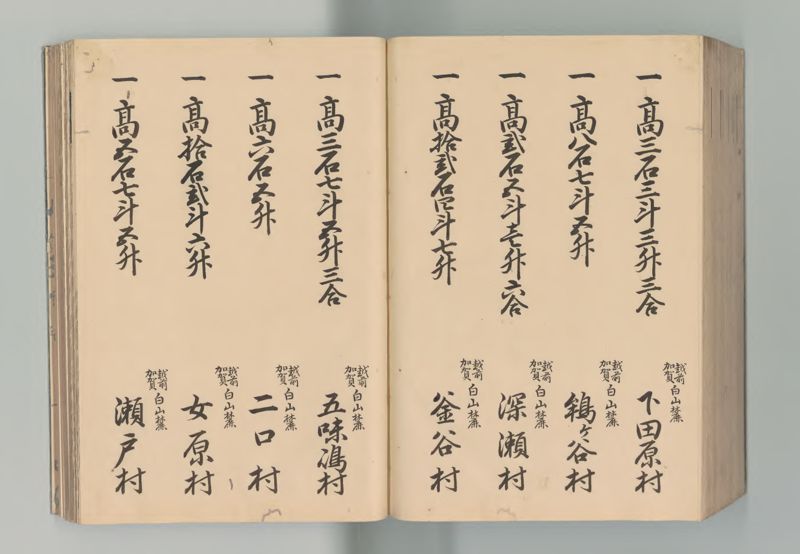 一高三石二斗三升三合
越前
加賀
白山麓
下田原村
一高八石七斗五升
越前
加賀
白山麓
鴇ヶ谷村
一高弐石五斗壱升六合
越前
加賀
白山麓
深瀬村
一高拾弐石四斗七升
越前
加賀
白山麓
釜谷村
一高三石七斗五升三合
越前
加賀
白山麓
五味嶋村
一高六石五升
越前
加賀
白山麓
二口村
一高拾石弐斗六升
越前
加賀
白山麓
女原村
一高五石七斗五升
越前
加賀
白山麓
瀬戸村